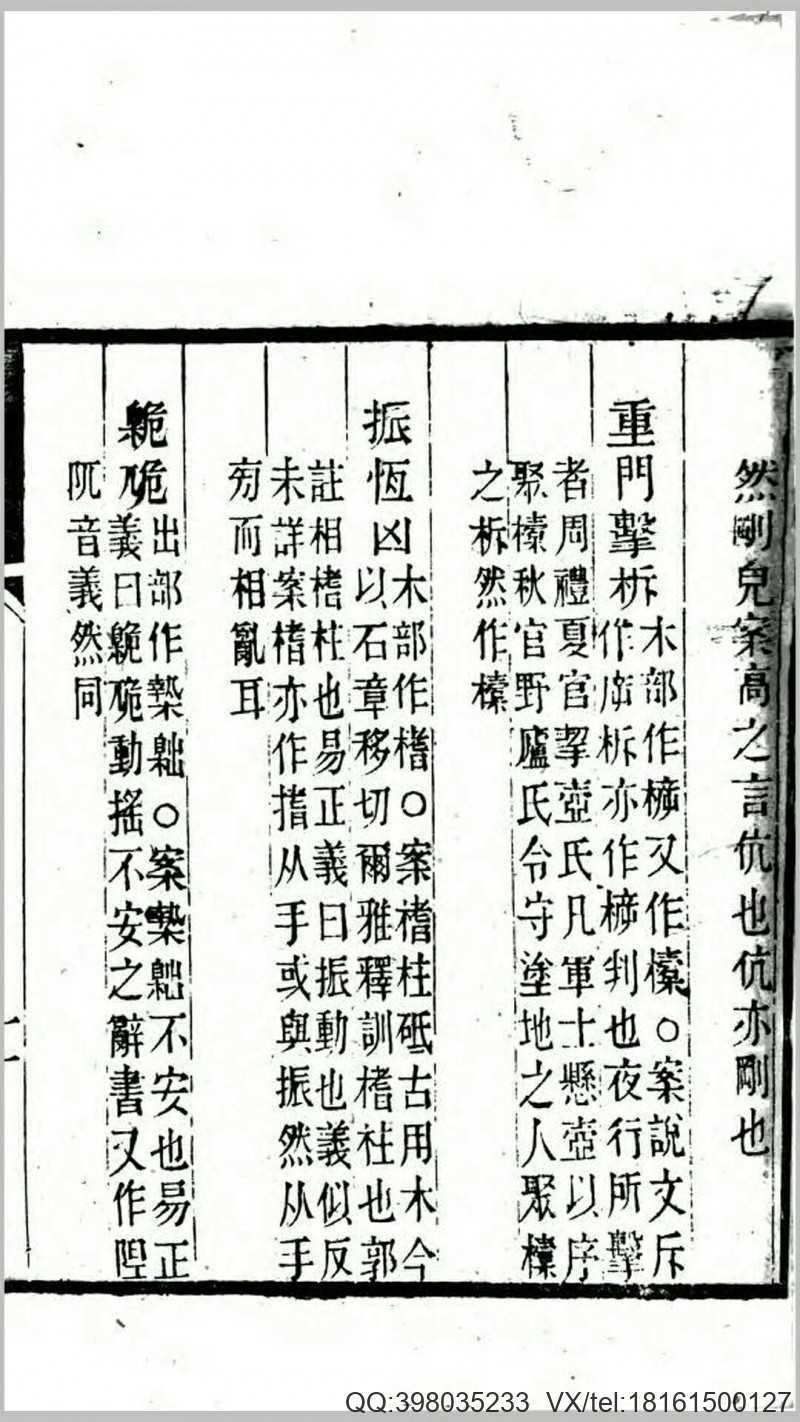 然剛皃案高之言伉也伉亦剛也
重門擊柝
木部作㯓又作㯱○案說文斥
作㡿柝亦作㯓判也夜行所擊
者周禮夏官挈壺氏凡軍士懸壺以序
聚㯱秋官野廬氏令守塗地之人聚㯱
之柝然作㯱
振恆凶
木部作榰○案榰柱砥古用木今
以石章移切爾雅釋訓榰柱也郭
註相榰柱也易正義曰振動也義似反
未詳案榰亦作搘从手或與振然从手
㫄而相亂耳
臲卼
出部作槷䵳○案槷䵳不安也易正
義曰臲卼動搖不安之辭書又作隉
阢音義然同
QQ:398035233 VX/tel:18161500127